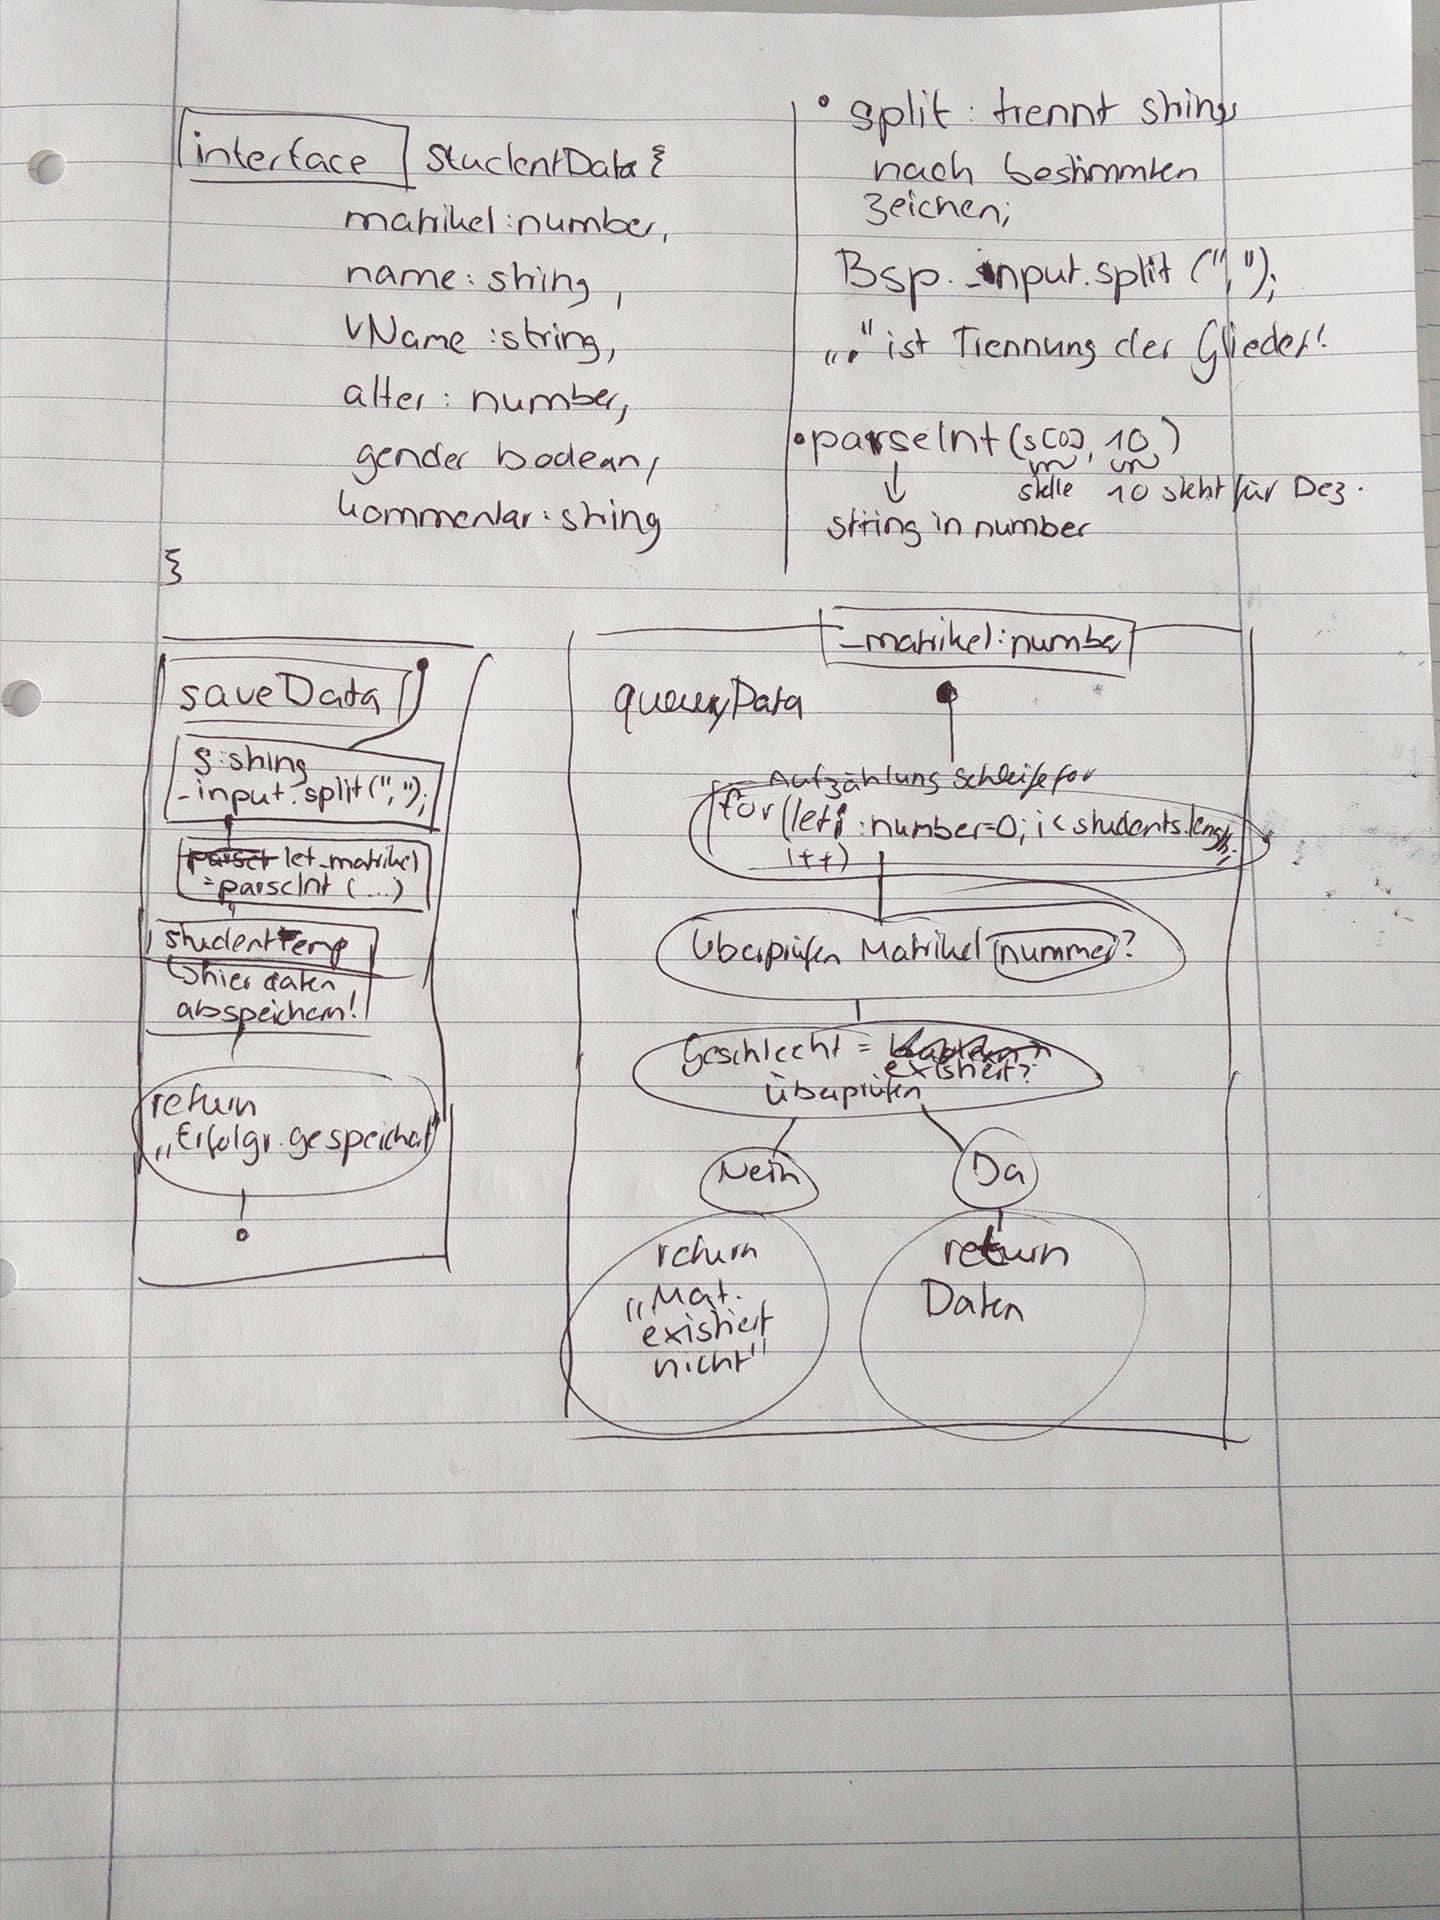 interface StudentData {
matrikel: number,
name: string,
vName: string,
alter: number,
gender boolean,
kommentar: string
}
• split: trennt strings
nach bestimmten
Zeichen;
Bsp. _input.split(",");
„," ist Trennung der Glieder!
• parseInt(s[0], 10)
stelle 10 steht für Dez.
string in number
saveData
s: string
_input.split(",");
let _matrikel
= parseInt (...)
studentTemp
↳ hier daten
abspeichern!
return
„Erfolgr. gespeichert"
_matrikel: number
queryData
Aufzählung Schleife for
for (let i: number=0; i < students.length;
i++)
Überprüfen Matrikelnummer?
Geschlecht =
existiert?
überprüfen
Nein
Da
return
„Mat.
existiert
nicht"
return
Daten